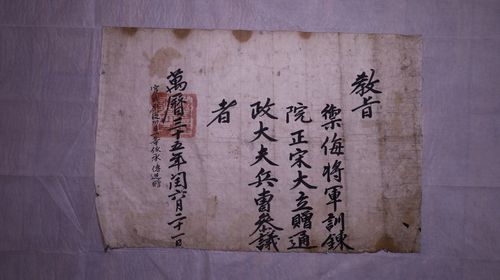 教旨
禦侮將軍訓鍊
院正宋大立贈通
政大夫兵曹參議
者
萬曆三十五年閏六月二十一日